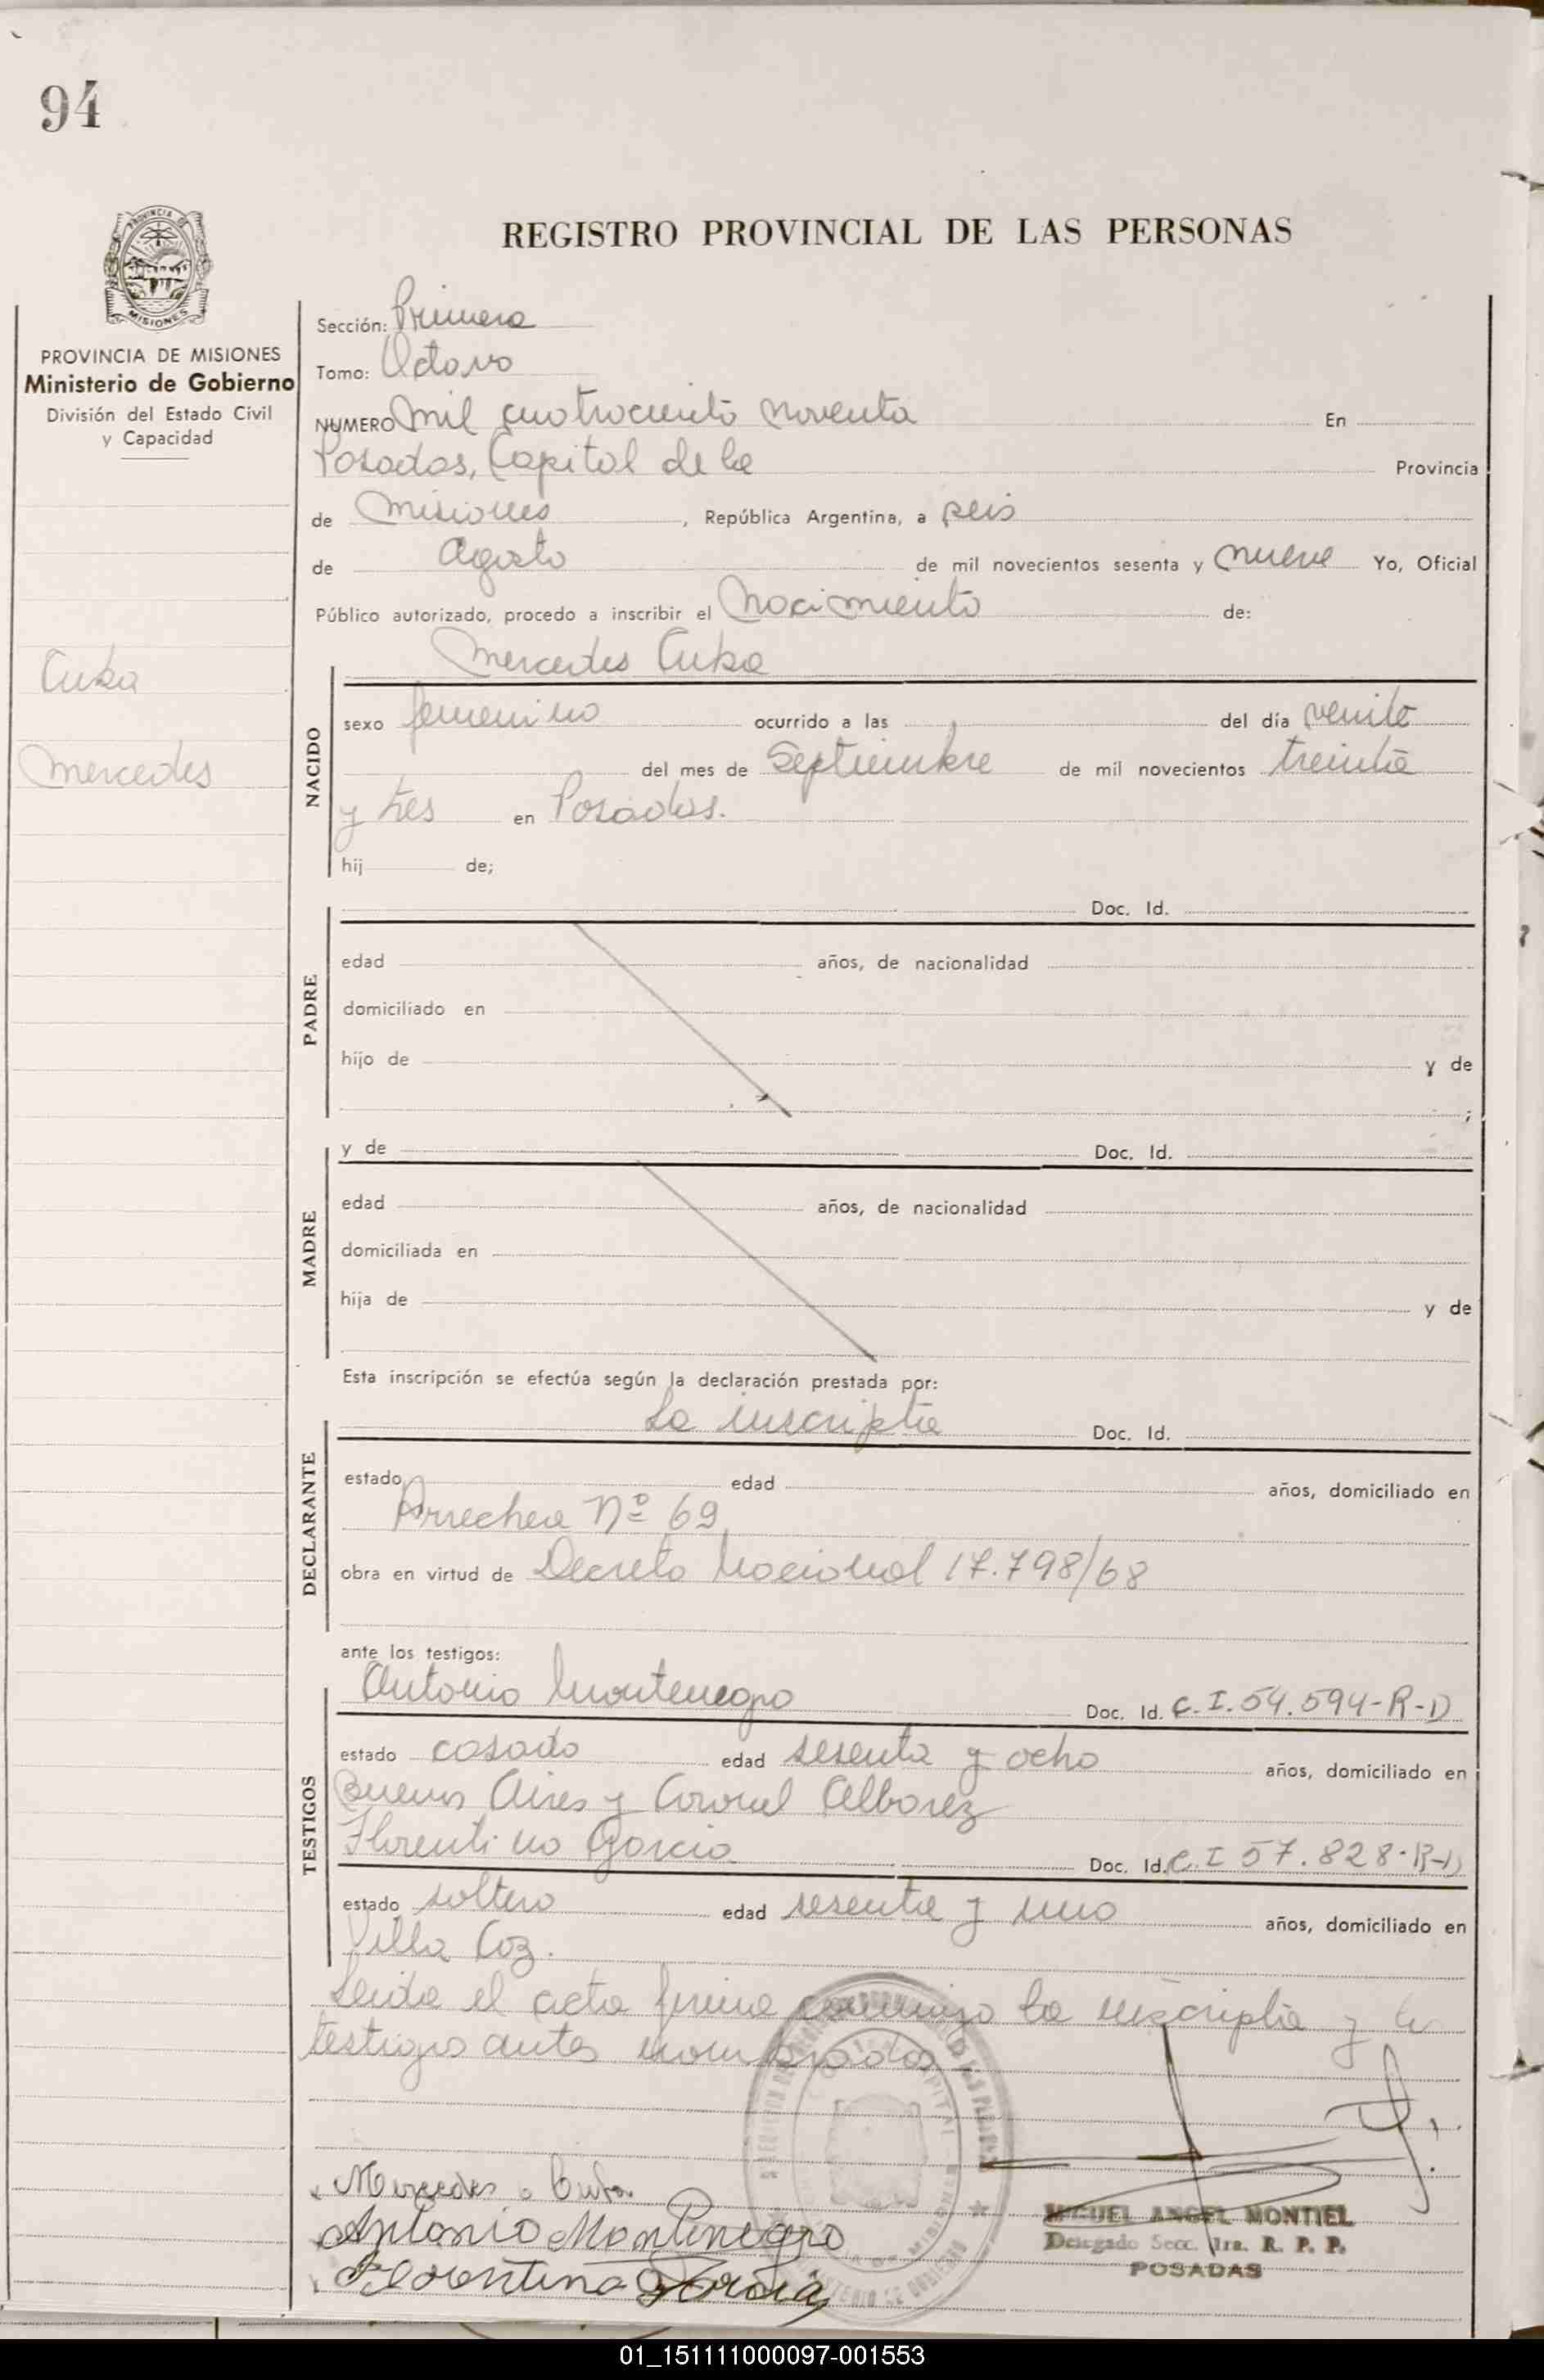 94
REGISTRO PROVINCIAL DE LAS PERSONAS
MISIONES
PROVINCIA DE MISIONES
Ministerio de Gobierno
División del Estado Civil
y Capacidad
Cuba
Mercedes
Sección: Primera
Tomo: Octavo
NUMERO Mil cuatrociento noventa En
Posadas, Capital de la Provincia
de Misiones, República Argentina, a seis
de Agosto de mil novecientos sesenta y nueve Yo, Oficial
Público autorizado, procedo a inscribir el Nacimiento de:
Mercedes Cuba
NACIDO
sexo femenino ocurrido a las del día veinte
del mes de Septiembre de mil novecientos treinta
y tres en Posadas.
hij de;
PADRE
Doc. Id.
edad años, de nacionalidad
domiciliado en
hijo de y de
;
MADRE
y de Doc. Id.
edad años, de nacionalidad
domiciliada en
hija de y de
Esta inscripción se efectúa según la declaración prestada por:
DECLARANTE
La inscripta Doc. Id.
estado edad años, domiciliado en
Arrechea Nº 69
obra en virtud de Decreto Nacional 17.798/68
ante los testigos:
TESTIGOS
Antonio Montenegro Doc. Id. C.I.54.594-R-D
estado casado edad sesenta y ocho años, domiciliado en
Buenos Aires y Coronel Alborez
Florentino Garcia Doc. Id. C.I 57.828-R-D
estado soltero edad sesenta y uno años, domiciliado en
Villa Coz.
Leida el acta firma conmigo la inscripta y los
testigos antes nombrados
Mercedes Cuba
Antonio Montenegro
Florentino Garcia
MIGUEL ANGEL MONTIEL
Delegado Secc. 1ra. R. P. P.
POSADAS
01_151111000097-001553